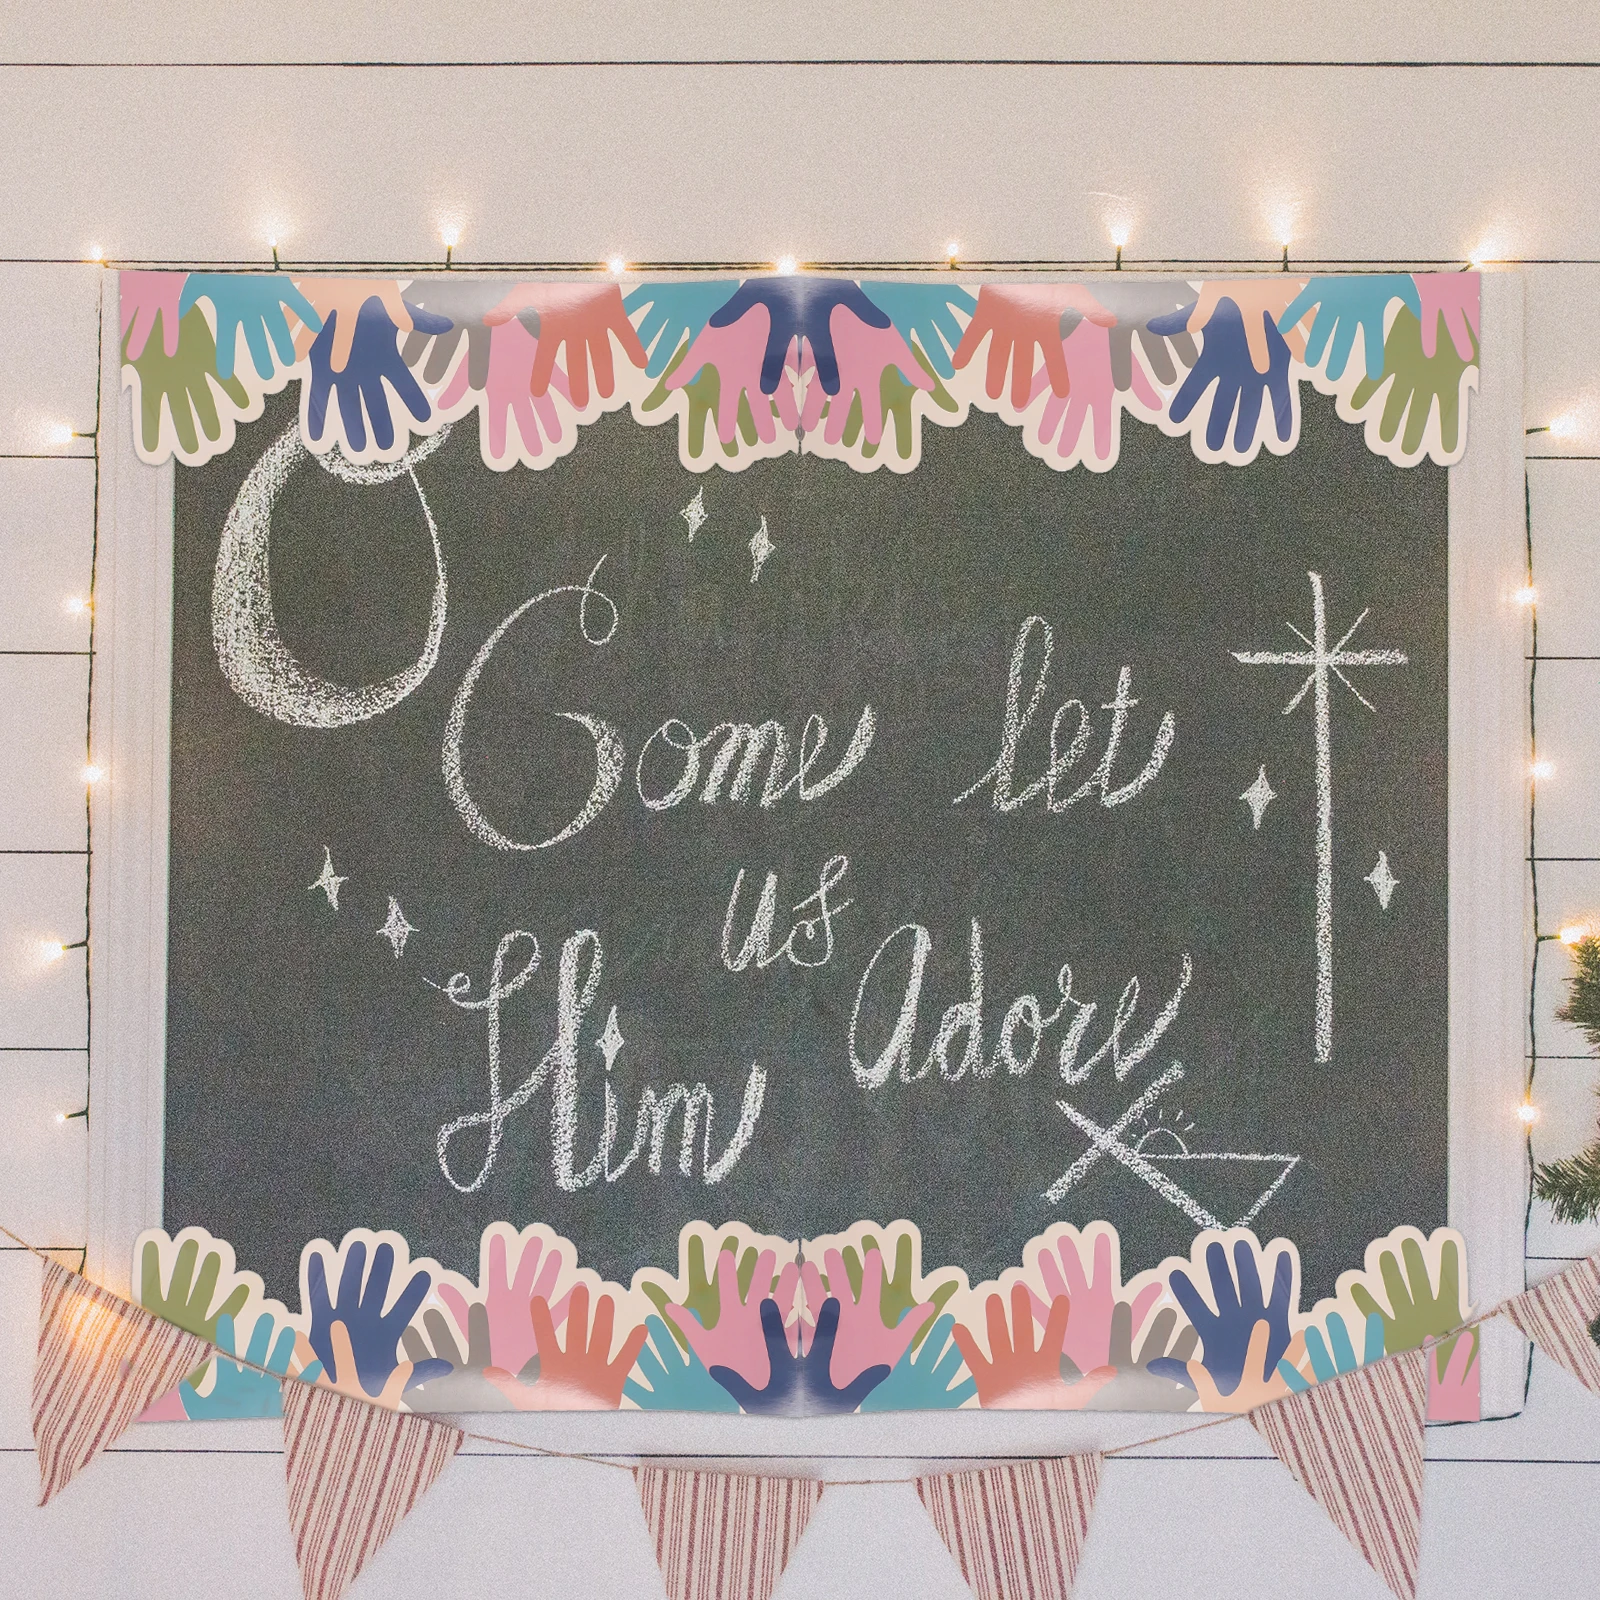 Come let
us
Him Adore